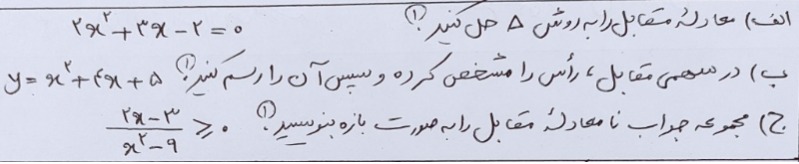 الف) معادلهٔ متقابل را به روش Δ حل کنید؟ (۱) ۲x² + ۳x - ۲ = ۰
ب) در سهمی متقابل، رأس را مشخص کرده و سپس آن را رسم کنید؟ (۱) y = x² + ۴x + ۵
ج) مجموعه جواب نامعادلهٔ متقابل را به صورت بازه بنویسید؟ (۱) (۲x - ۳)/(x² - ۹) ≥ ۰